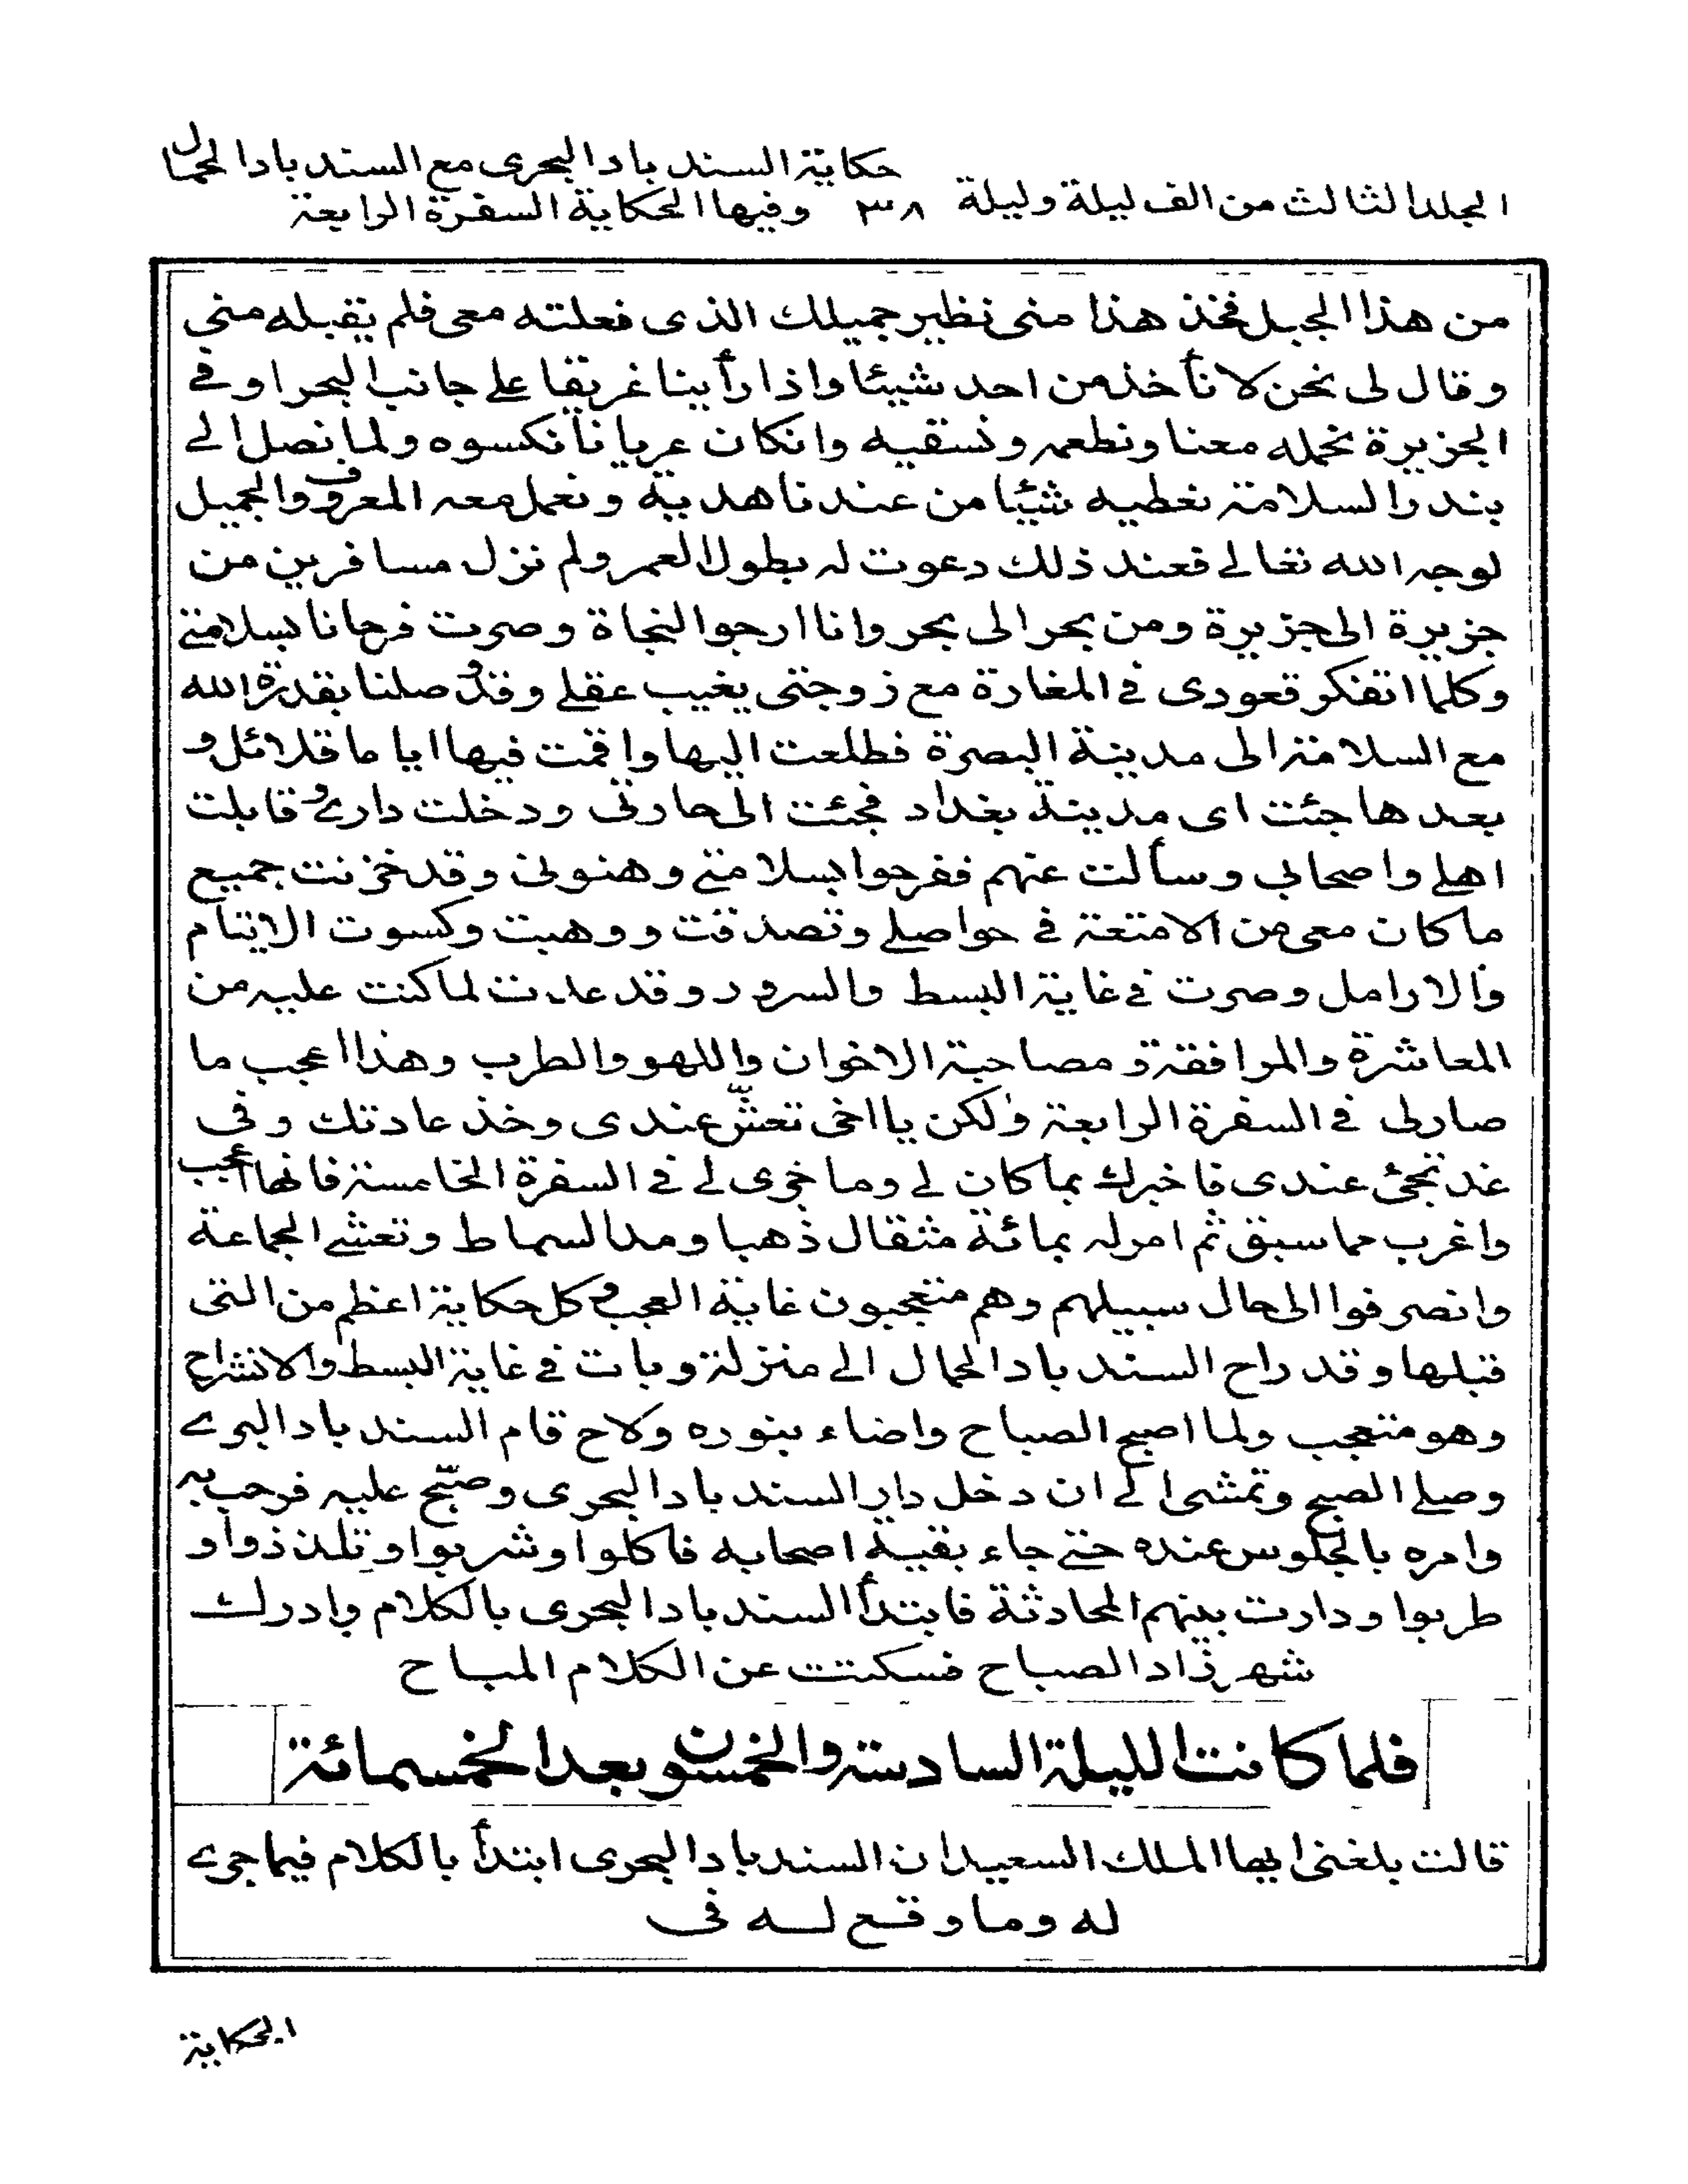 حكاية السند باد البحرى مع السند باد الحمال
المجلد الثالث من الف ليلة وليلة ٣٨ وفيها الحكاية السفرة الرابعة
من هذا الجبل فخذ هذا منى نظير جميلك الذى فعلته معى فلم يقبله منى
وقال لى نحن لا نأخذ من احد شيئا واذا رأينا غريقا على جانب البحر او فى
الجزيرة نحمله معنا ونطعمه ونسقيه وانكان عريانا نكسوه ولما نصل الى
بندر السلامة نعطيه شيئا من عندنا هدية ونعمل معه المعروف والجميل
لوجه الله تعالى فعند ذلك دعوت له بطول العمر ولم نزل مسافرين من
جزيرة الى جزيرة ومن بحر الى بحر وانا ارجوا لنجاة وصرت فرحانا بسلامتى
وكلما اتفكر قعودى فى المغارة مع زوجتى يغيب عقلى وقد وصلنا بقدرة الله
مع السلامة الى مدينة البصرة فطلعت اليها واقمت فيها اياما قلائل و
بعدها جئت اى مدينة بغداد فجئت الى حارتى ودخلت دارى وقابلت
اهلى واصحابى وسألت عنهم ففرحوا بسلامتى وهنونى وقد خزنت جميع
ما كان معى من الامتعة فى حواصلى وتصدقت ووهبت وكسوت الايتام
والارامل وصرت فى غاية البسط والسرور وقد عدت لما كنت عليه من
المعاشرة والمرافقة ومصاحبة الاخوان واللهو والطرب وهذا اعجب ما
صار لى فى السفرة الرابعة ولكن يا اخى تعشّ عندى وخذ عادتك وفى
غد تجئ عندى فاخبرك بما كان لى وما جرى لى فى السفرة الخامسة فانها اعجب
واغرب مما سبق ثم امر له بمائة مثقال ذهبا ومد السماط وتعشى الجماعة
وانصرفوا الى حال سبيلهم وهم متعجبون غاية العجب وكل حكاية اعظم من التى
قبلها وقد راح السند باد الحمال الى منزلة وبات فى غاية البسط والانشراح
وهو متعجب ولما اصبح الصباح واضاء بنوره ولاح قام السند باد البرى
وصلى الصبح وتمشى الى ان دخل دار السند باد البحرى وصبّح عليه فرحب به
وامره بالجلوس عنده حتى جاء بقية اصحابه فاكلوا وشربوا وتلذذوا و
طربوا ودارت بينهم المحادثة فابتدأ السند باد البحرى بالكلام وادرك
شهرزاد الصباح فسكتت عن الكلام المباح
فلما كانت الليلة السادسة والخمسون بعد الخمسمائة
قالت بلغنى ايها الملك السعيد ان السند باد البحرى ابتدأ بالكلام فيما جرى
له وما وقع له فى
الحكاية